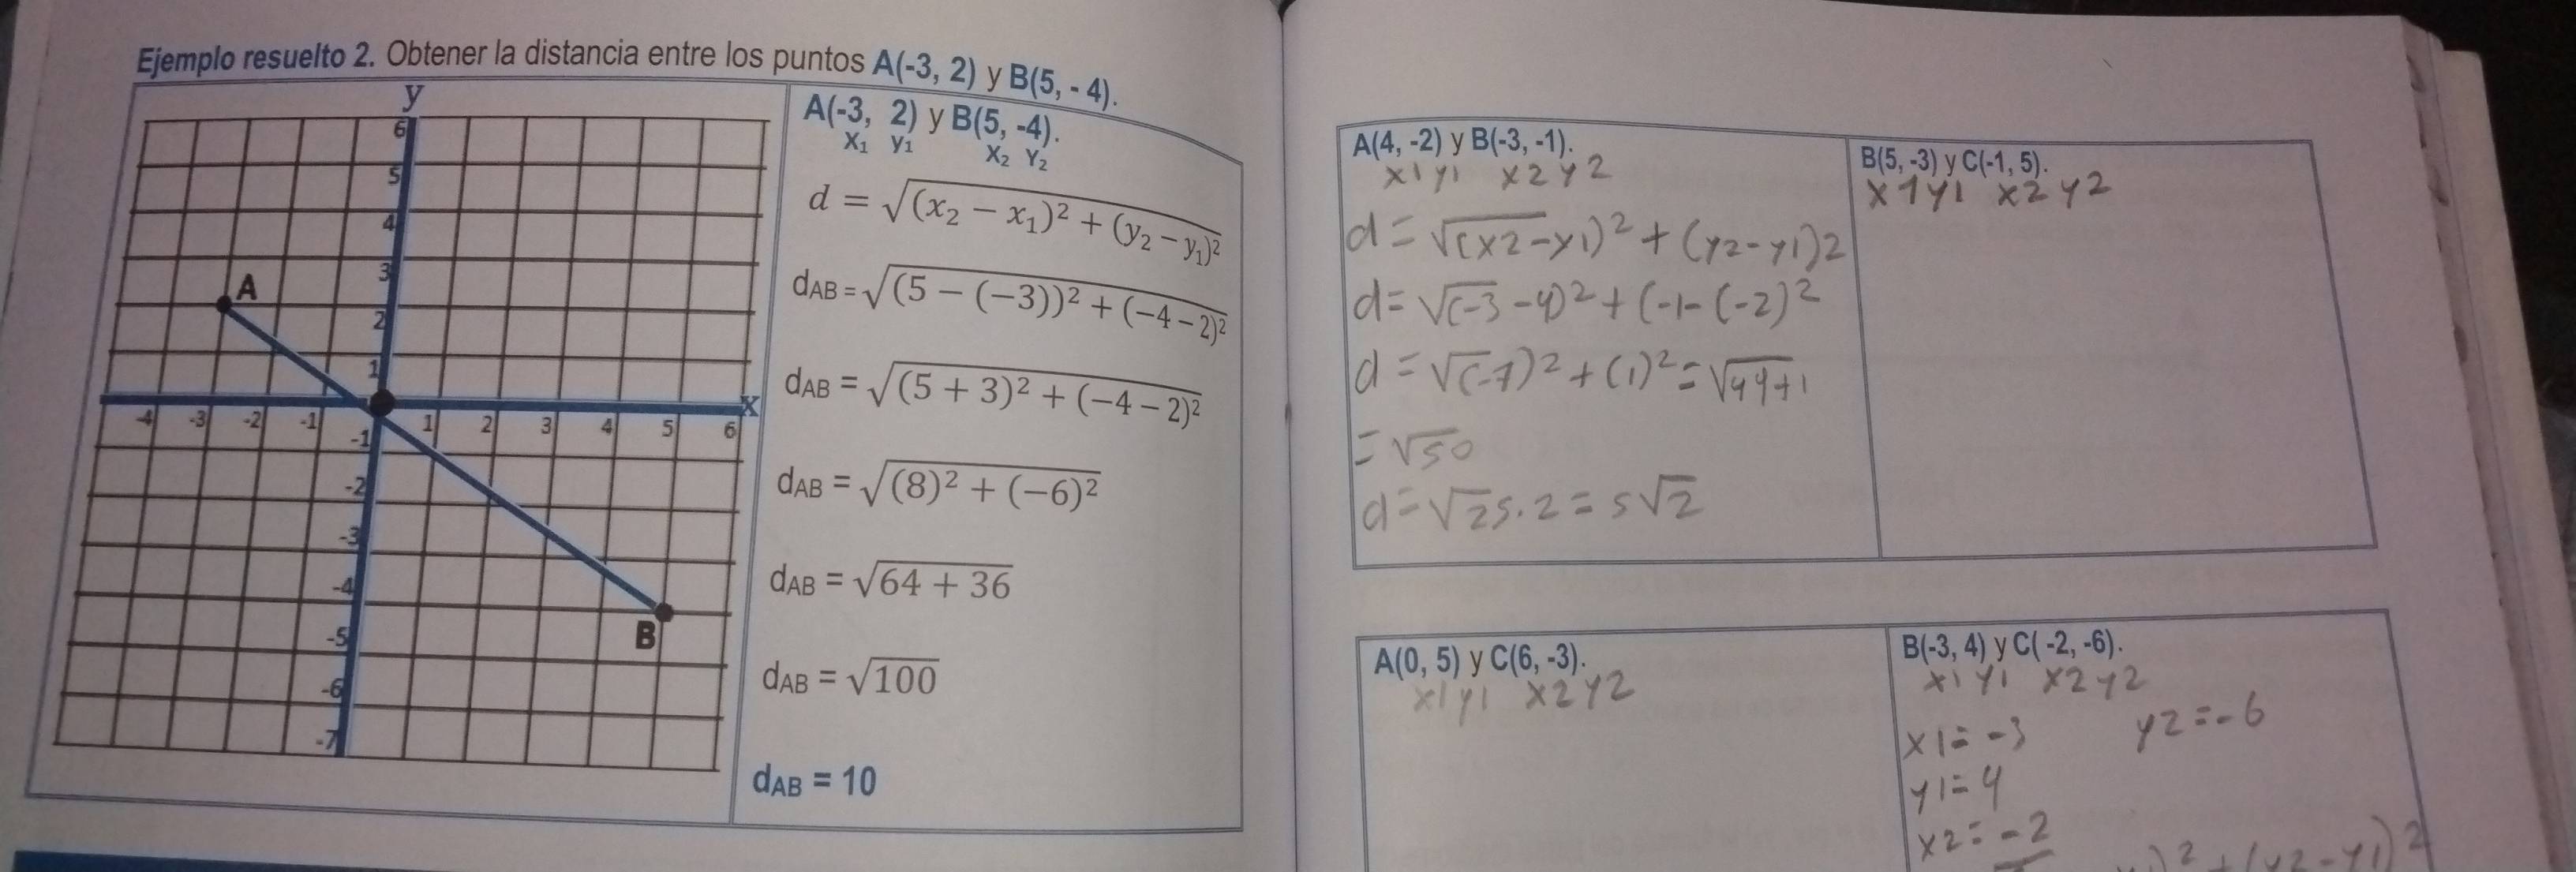 Ejemplo resuelto 2. Obtener la distancia entre los puntos A(-3, 2) y B(5, - 4).
y
6
5
4
3
2
1
A
x
-4 -3 -2 -1 1 2 3 4 5 6
-1
-2
-3
-4
-5
-6
-7
B
A(-3, 2) y B(5, -4).
X₁ y₁ X₂ Y₂
d = √(x₂ − x₁)² + (y₂ − y₁)²
dAB = √(5 − (−3))² + (−4 − 2)²
dAB = √(5 + 3)² + (−4 − 2)²
dAB = √(8)² + (−6)²
dAB = √64 + 36
dAB = √100
dAB = 10
A(4, -2) y B(-3, -1).
x1 y1 x2 y2
d = √(x2-y1)² + (y2-y1)2
d = √(-3-4)² + (-1-(-2)²
d = √(-7)² + (1)² = √49+1
= √50
d = √25.2 = 5√2
B(5, -3) y C(-1, 5).
x1 y1 x2 y2
A(0, 5) y C(6, -3).
x1 y1 x2 y2
B(-3, 4) y C( -2, -6).
x1 y1 x2 y2
x1 = -3 y2 = -6
y1 = 4
x2 = -2
)² + (y2-y1)2